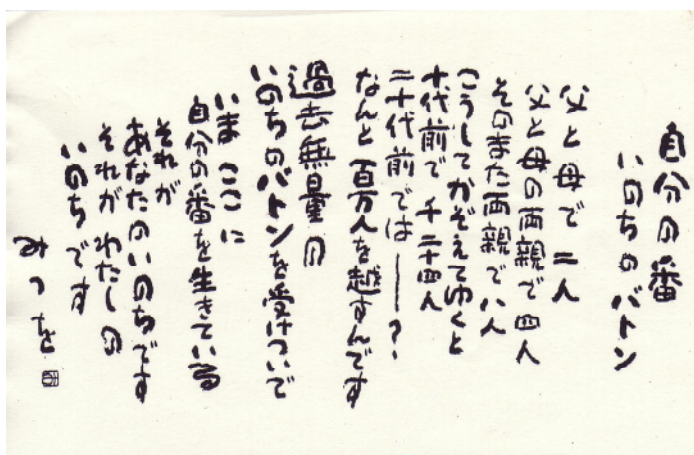 自分の番
いのちのバトン
父と母で 二人
父と母の両親で 四人
そのまた両親で 八人
こうしてかぞえてゆくと
十代前で 千二十四人
二十代前では―？
なんと 百万人を越すんです
過去無量の
いのちのバトンを受けついで
いま ここに
自分の番を生きている
それが
あなたのいのちです
それが わたしの
いのち です
みつを